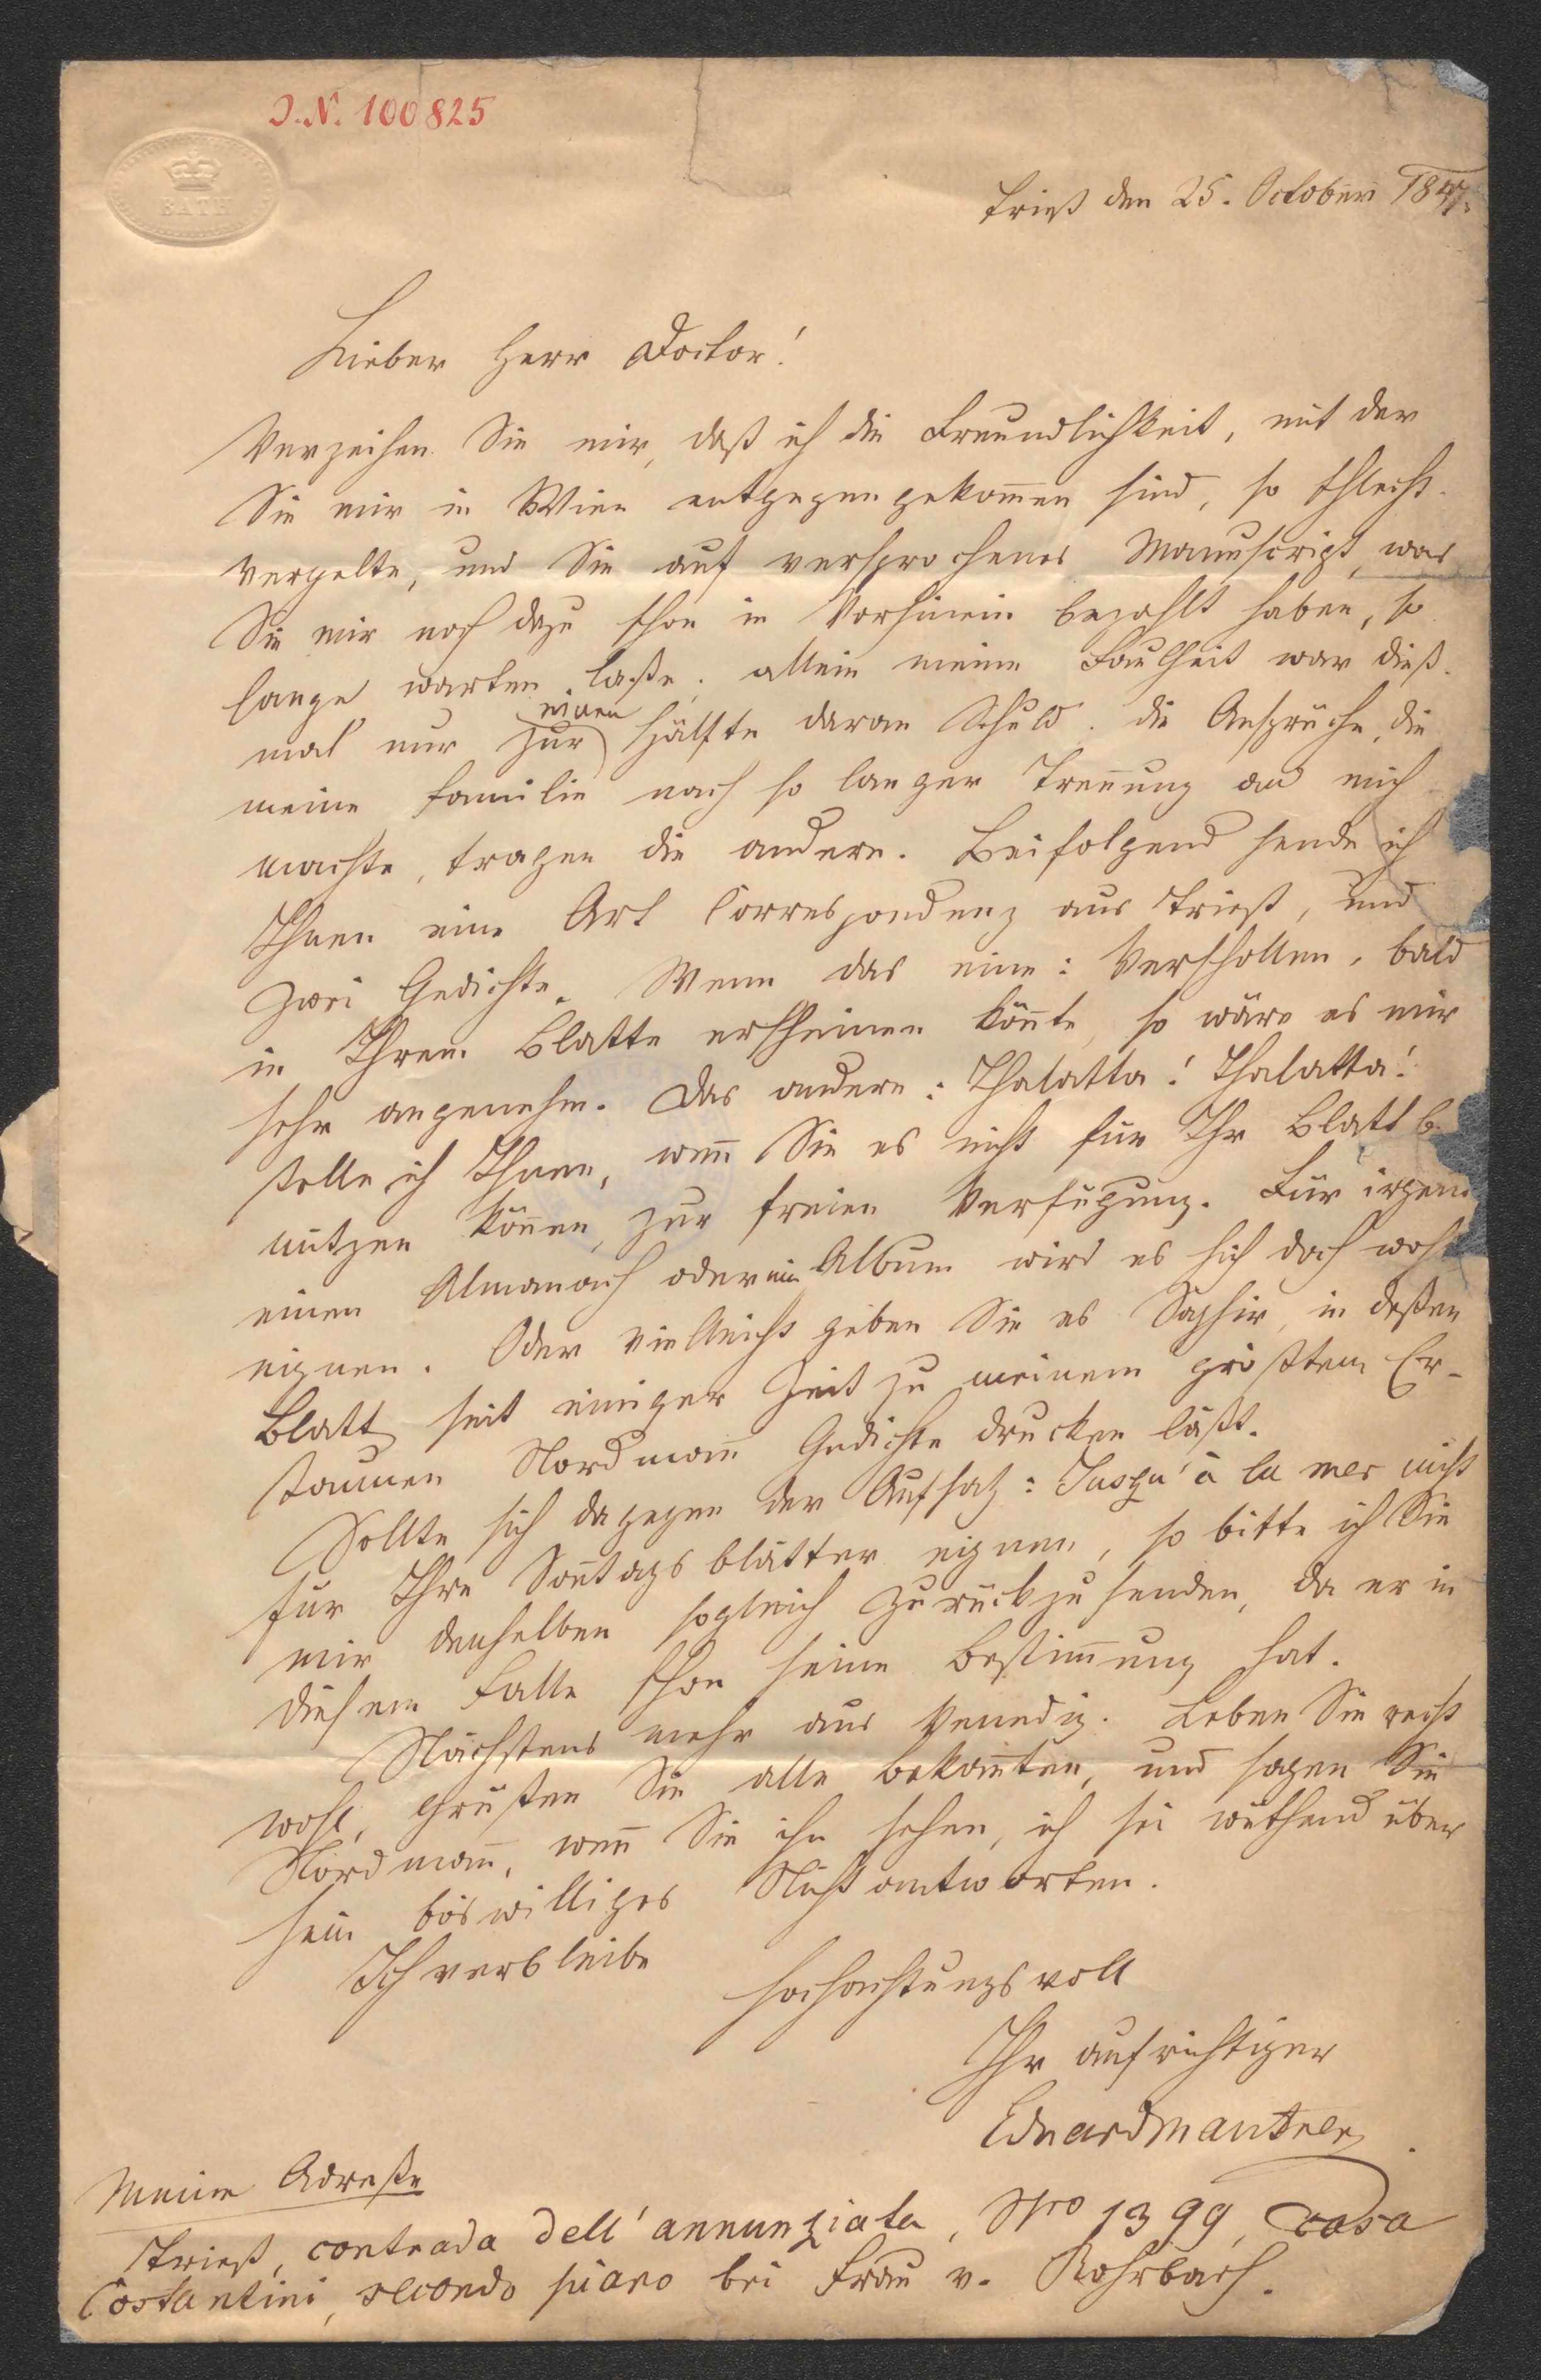 I.N. 100825
BATH
Triest den 25. October 1847.
Lieber Herr Doctor!
Verzeihen Sie mir, daß ich die Freundlichkeit, mit der
Sie mir in Wien entgegengekom̄en sind, so schlecht
vergelte, und Sie auf versprochenes Manuscript, was
Sie mir noch dazu schon in Vorhinein bezahlt haben, so
lange warten laße; allein meine Faulheit war dieß-
mal nur zur einen Hälfte daran Schuld. die Ansprüche, die
meine Familie nach so langer Tren̄ung an mich
machte, tragen die andere. Beifolgend sende ich
Ihnen eine Art Correspondenz aus Triest, und
zwei Gedichte. Wenn das eine: Verschollen, bald
in Ihrem Blatte erscheinen kön̄te, so wäre es mir
sehr angenehm. Das andere: Thalatta! Thalatta!
stelle ich Ihnen, wen̄ Sie es nicht für Ihr Blatt b
nützen kön̄en, zur freien Verfügung. Für irgend
einen Almanach oder ein Album wird es sich doch wohl
eignen. Oder vielleicht geben Sie es Saphir, in deßen
Blatt seit einiger Zeit zu meinem größten Er-
staunen Nordman̄ Gedichte drucken läßt.
Sollte sich dagegen der Aufsatz: Jusqu'à la mer nicht
für Ihre Son̄tagsblätter eignen, so bitte ich Sie
mir denselben sogleich zurückzusenden, da er in
diesem Falle schon seine Bestim̄ung hat.
Nächstens mehr aus Venedig. Leben Sie recht
wohl, grüßen Sie alle Bekan̄ten, und sagen Sie
Nordman̄, wen̄ Sie ihn sehen, ich sei wüthend über
sein böswilliges Nichtantworten.
Ich verbleibe
hochachtungsvoll
Ihr aufrichtiger
Eduard Mautner
Meine Adreße
Triest, contrada dell'annunziata, Nro 1399, casa
Costantini, secondo piano bei Frau v. Rohrbach.